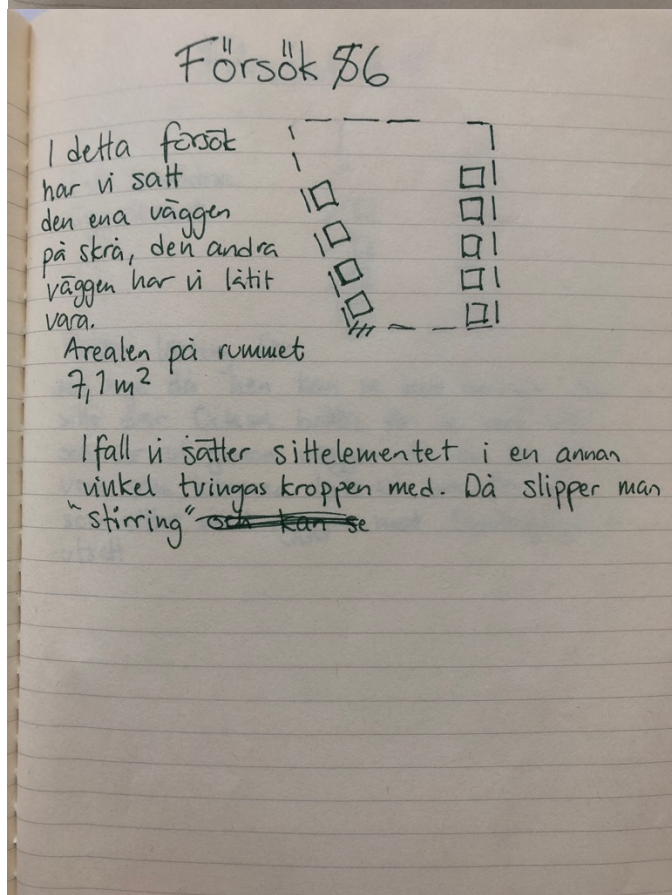 Försök 6
I detta försök
har vi satt
den ena väggen
på skrå, den andra
väggen har vi låtit
vara.
Arealen på rummet
7,1 m²
Ifall vi sätter sittelementet i en annan
vinkel tvingas kroppen med. Då slipper man
"stirring" och kan se